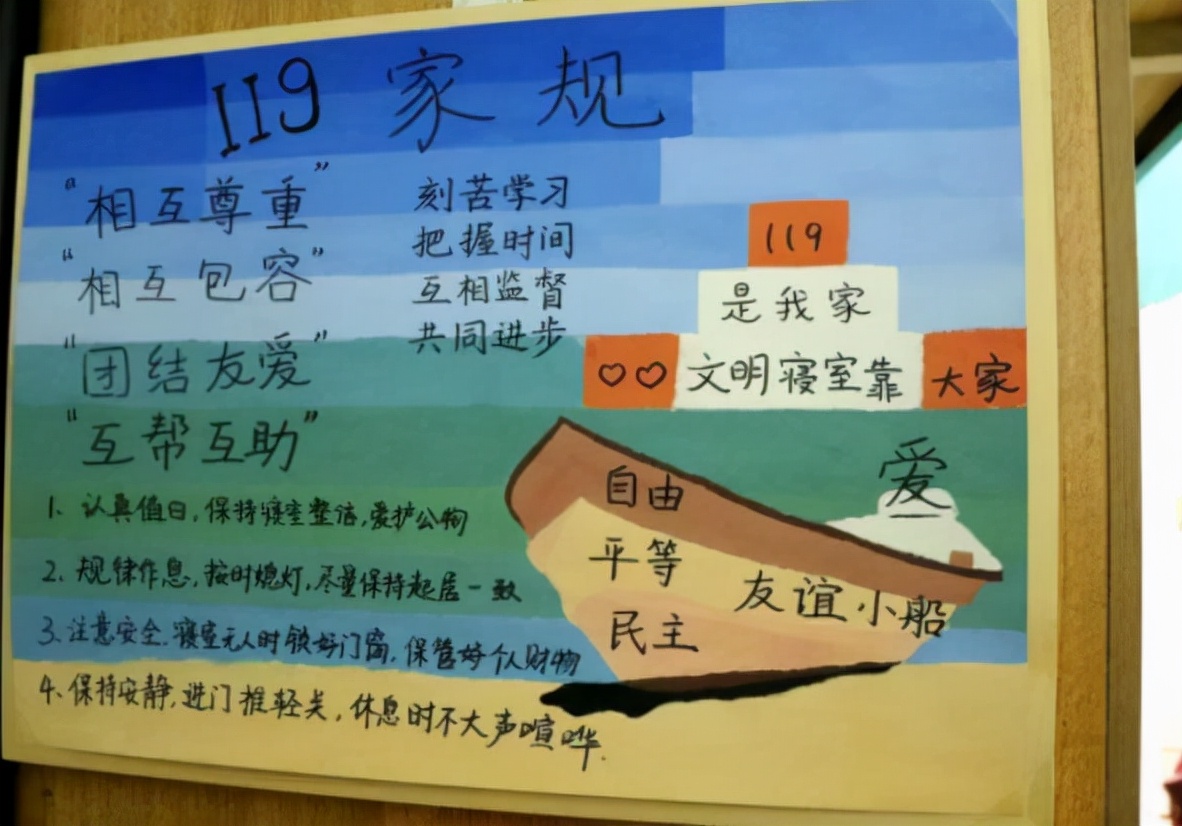 119 家规
“相互尊重”
“相互包容”
“团结友爱”
“互帮互助”
刻苦学习
把握时间
互相监督
共同进步
119
是我家
♡♡ 文明寝室靠 大家
爱
自由
平等
民主
友谊小船
1、认真值日，保持寝室整洁，爱护公物
2、规律作息，按时熄灯，尽量保持起居一致
3、注意安全，寝室无人时锁好门窗，保管好个人财物
4、保持安静，进门推轻关，休息时不大声喧哗.